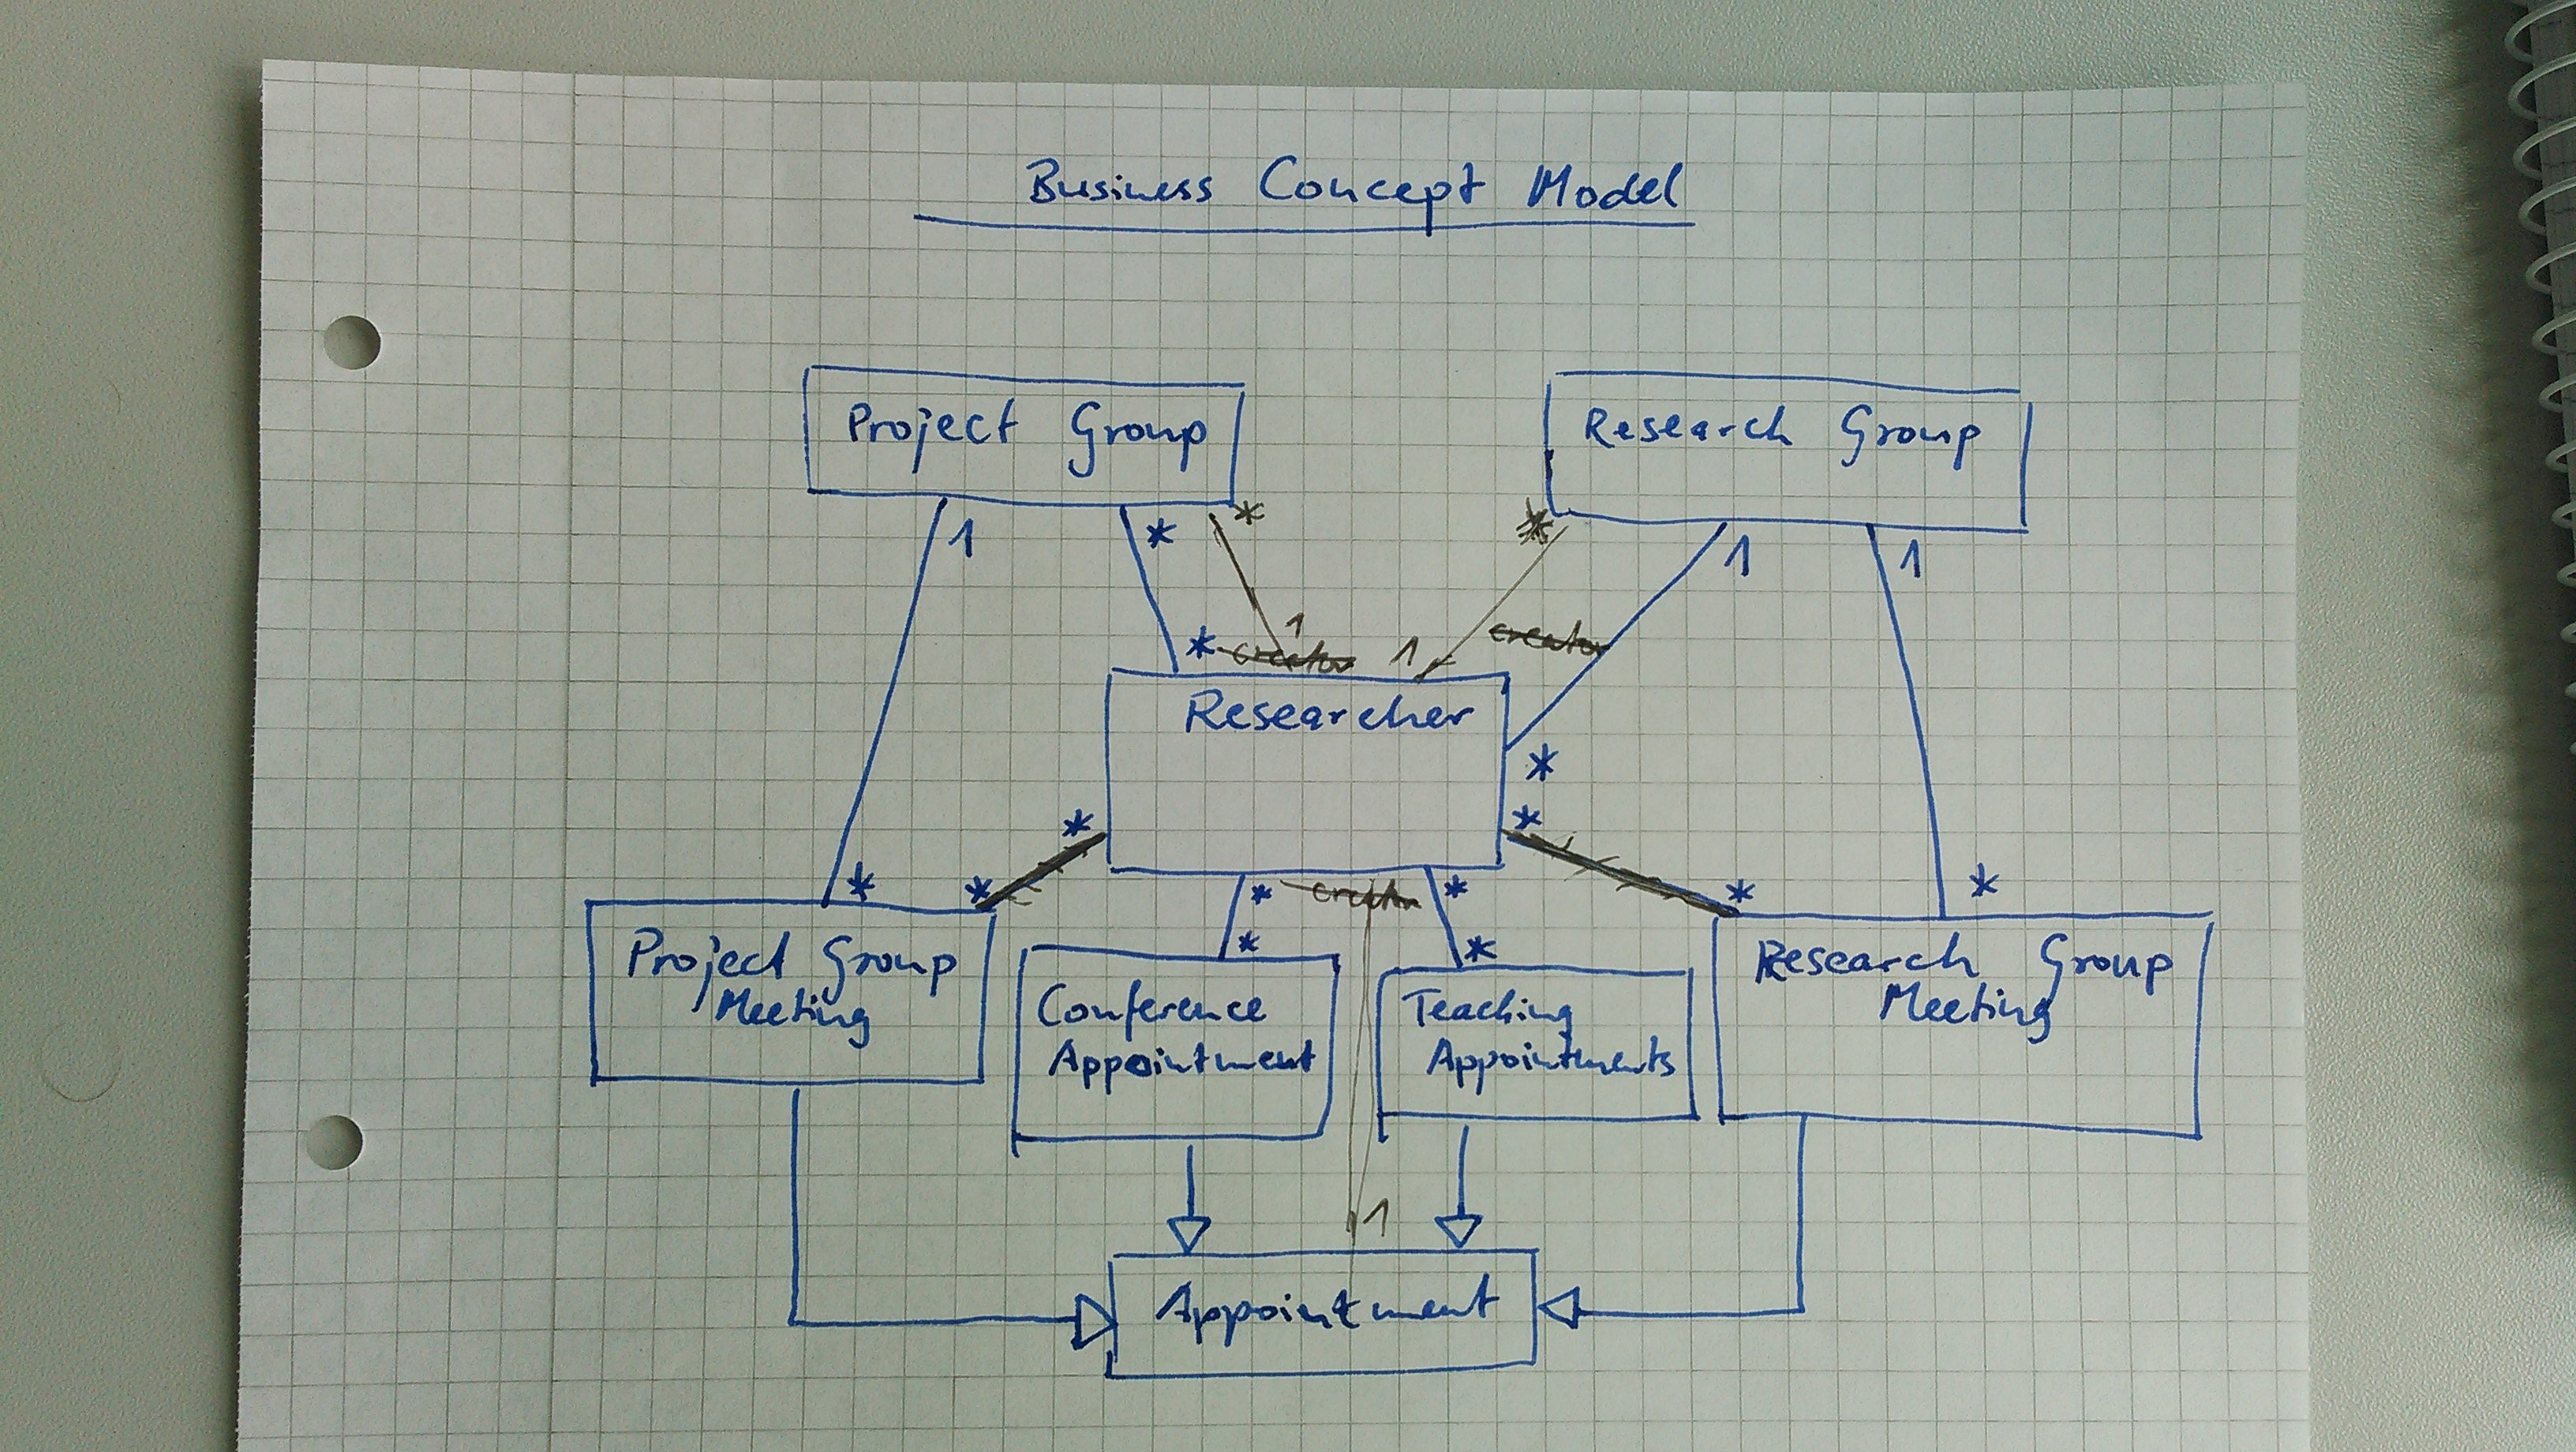 Business Concept Model
Project Group
Research Group
1
*
*
*
1
1
*
1
creator
1
creator
Researcher
*
*
*
*
*
*
*
creator
*
*
*
*
Project Group
Meeting
Conference
Appointment
Teaching
Appointments
Research Group
Meeting
1
Appointment